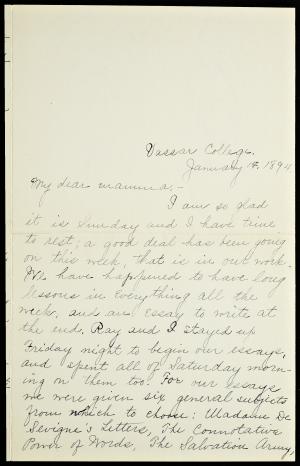 Vassar College,
January 1894
My dear mamma,-
I am so glad
it is Sunday and I have time
to rest; a good deal has been going
on this week, that is in our work.
We have happened to have long
lessons in everything all the
week, and an essay to write at
the end. Ray and I stayed up
Friday night to begin our essays,
and spent all of Saturday morn-
ing on them too. For our essays
we were given six general subjects
from which to choose: Madame De
Sevigne's Letters, The Connotative
Power of Words, The Salvation Army,